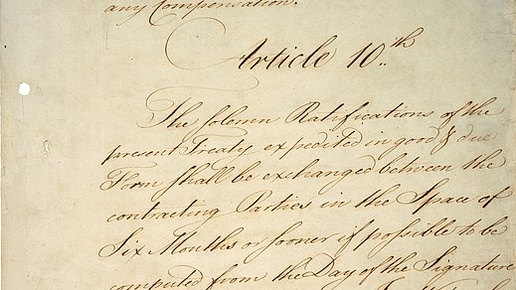 any Compensation.
Article 10th
The solemn Ratifications of the
present Treaty expedited in good & due
Form shall be exchanged between the
contracting Parties in the Space of
Six Months or sooner if possible to be
computed from the Day of the Signature